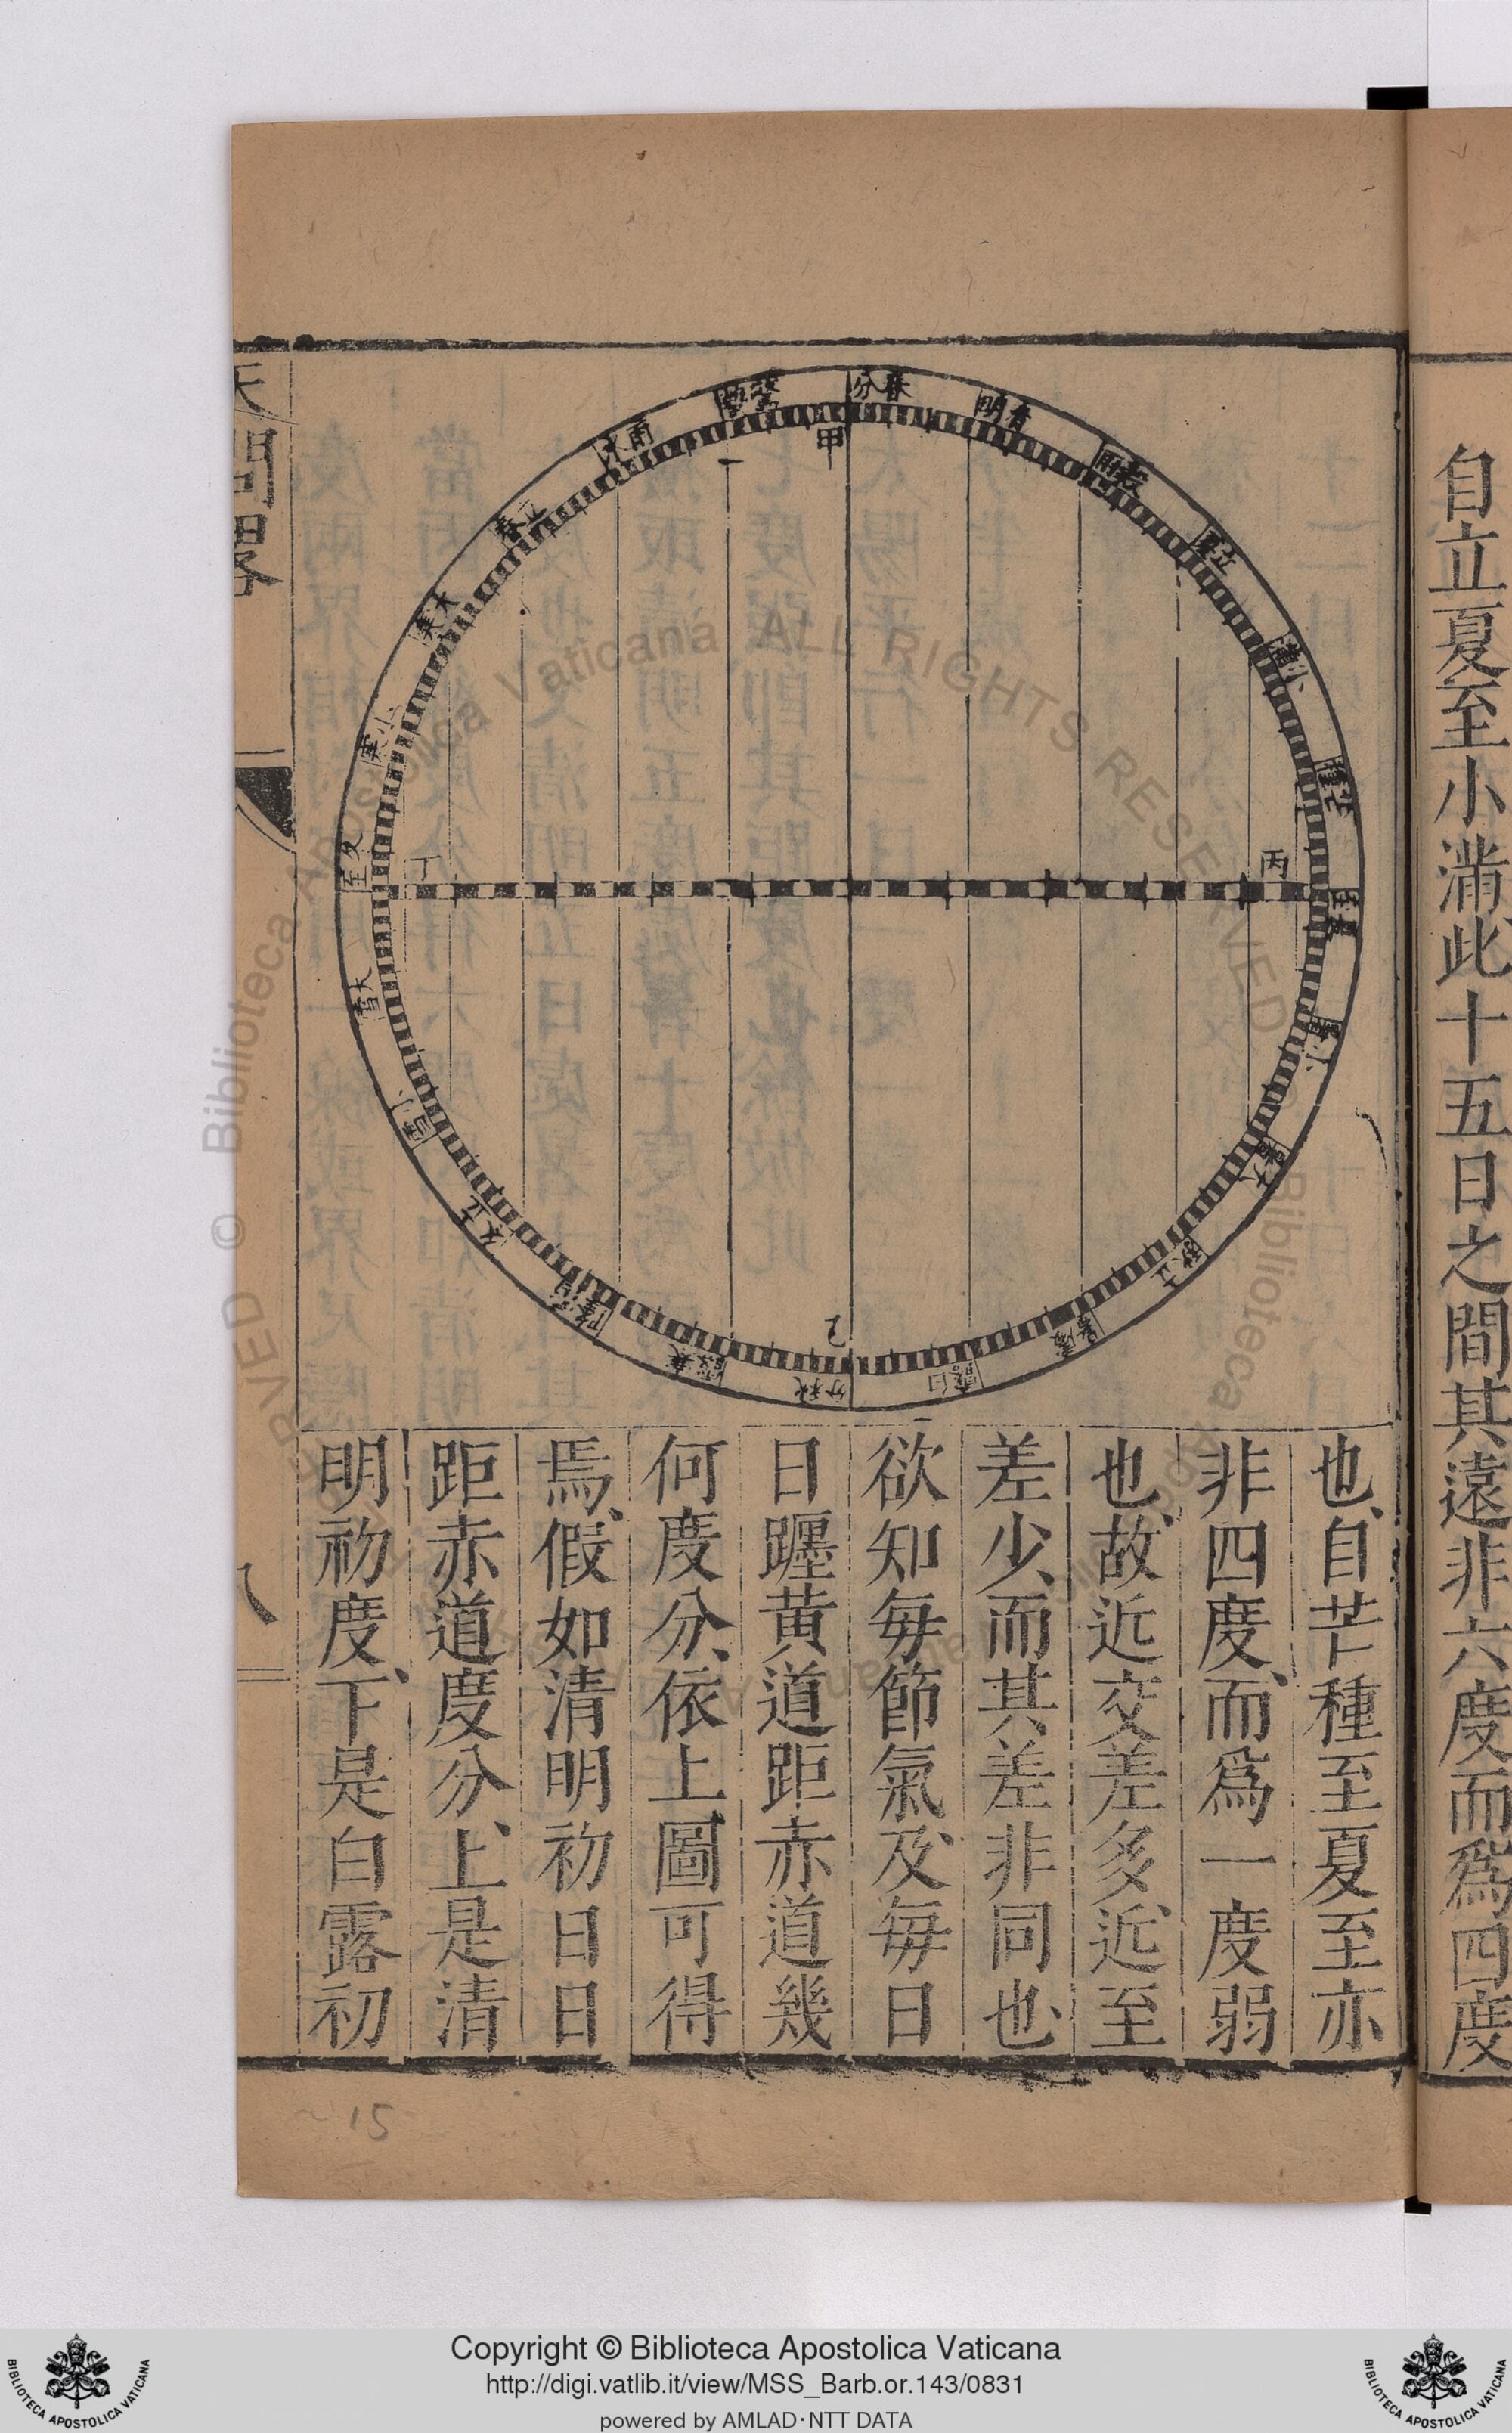 自立夏至小滿此十五日之間其遠非六度而爲四度
也、自芒種至夏至亦
非四度、而爲一度弱
也、故近交差多、近至
差少、而其差非同也、
欲知每節氣及、每日
日躔黃道距赤道幾
何度分、依上圖可得
焉、假如清明初日日
距赤道度分、上是清
明初度、下是白露初
天問畧
八
春分
清明
穀雨
立夏
小滿
芒種
夏至
小暑
大暑
立秋
處暑
白露
秋分
寒露
霜降
立冬
小雪
大雪
冬至
小寒
大寒
立春
雨水
驚蟄
甲
乙
丙
丁
15
© Biblioteca Apostolica Vaticana ALL RIGHTS RESERVED
Copyright © Biblioteca Apostolica Vaticana
http://digi.vatlib.it/view/MSS_Barb.or.143/0831
powered by AMLAD·NTT DATA
BIBLIOTECA APOSTOLICA VATICANA
BIBLIOTECA APOSTOLICA VATICANA